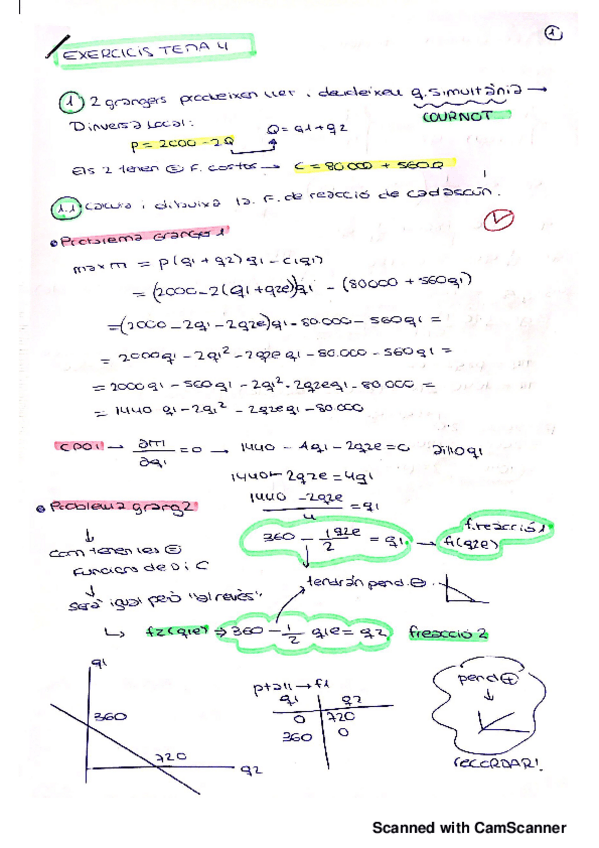 1
EXERCICIS TEMA 4
1 2 grangers produeixen llet i decideixen q. simultània →
D inversa local: Q = q1 + q2 COURNOT
P = 2000 - 2Q
Els 2 tenen = F. costos → C = 80 000 + 560Q
1.1 Calcula i dibuixa la F. de reacció de cadascún.
Problema Granger 1
max π = P(q1 + q2) q1 - C(q1)
= (2000 - 2(q1 + q2e)) q1 - (80000 + 560q1)
= (2000 - 2q1 - 2q2e) q1 - 80.000 - 560q1 =
= 2000q1 - 2q1² - 2q2e q1 - 80.000 - 560q1 =
= 2000q1 - 560q1 - 2q1² - 2q2e q1 - 80 000 =
= 1440 q1 - 2q1² - 2q2e q1 - 80.000
CPO1 → ∂π1/∂q1 = 0 → 1440 - 4q1 - 2q2e = 0 aïllo q1
1440 - 2q2e = 4q1
Problema grang 2
(1440 - 2q2e)/4 = q1
360 - 1q2e/2 = q1 → f1(q2e) f.reacció 1
com tenen les =
Funcions de D i C
tendrán pend. ⊖
serà igual però "al revés"
↳ f2(q1e) ⇒ 360 - 1/2 q1e = q2 freacció 2
q1
360
720
q2
ptall → f1
q1 q2
0 720
360 0
pend ⊕
RECORDAR!
Scanned with CamScanner